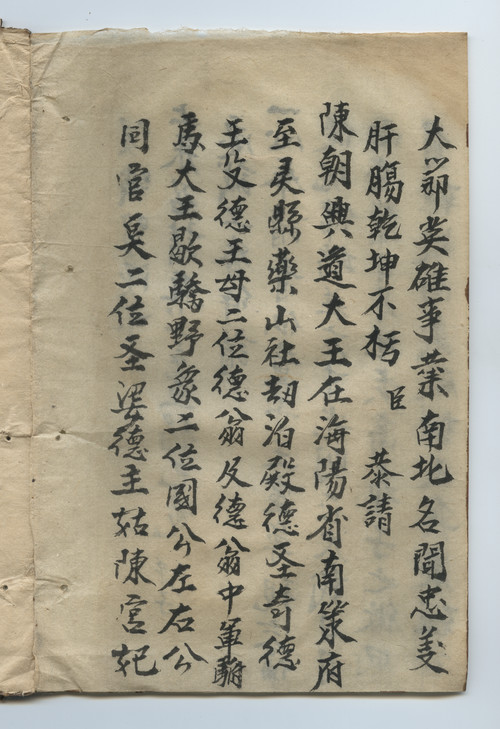 大部英雄事業南北名聞忠義
肝腸乾坤不朽 臣 恭請
陳朝興道大王在海陽省南策府
至灵縣藥山社刼泊殿德圣奇德
王父德王母二位德翁及德翁中軍駙
馬大王歇驕野象二位國公左右公
同官吳二位圣梁德主姑陳宫妃